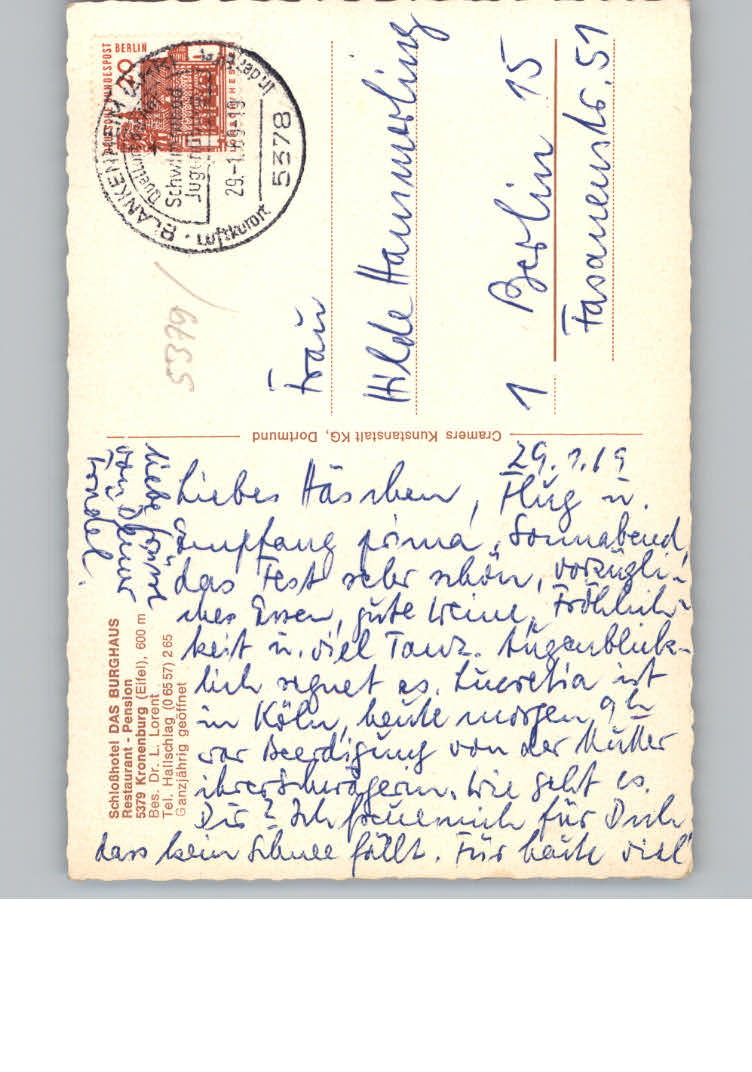 DEUTSCHE BUNDESPOST BERLIN
BLANKENHEIM (AHR)
Luftkurort
5378
29.-1.69-19
Schwimmbad
5379
Frau
Hilde Hammerling
1 Berlin 15
Fasanenstr. 51
Cramers Kunstanstalt KG, Dortmund
29.1.69
Liebes Häschen, Flug u.
Empfang prima, Sonnabend,
das Fest sehr schön, vorzügli-
ches Essen, gute Weine, Fröhlich-
keit u. viel Tanz. Augenblick-
lich regnet es. Lucretia ist
in Köln, heute morgen 9h
war Beerdigung von der Mutter
ihrer Schwägerin. Wie geht es
Dir? Ich freue mich für Dich
dass kein Schnee fällt. Für heute viel
liebe Grüsse
von Deiner
Schloßhotel DAS BURGHAUS
Restaurant - Pension
5379 Kronenburg (Eifel), 600 m
Bes. Dr. L. Lorent
Tel. Hallschlag (0 65 57) 2 65
Ganzjährig geöffnet